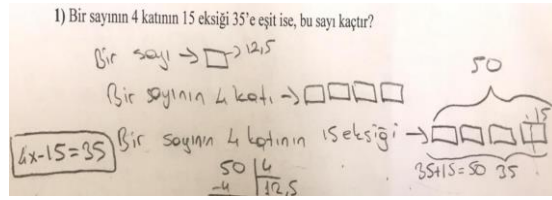 1) Bir sayının 4 katının 15 eksiği 35'e eşit ise, bu sayı kaçtır?
Bir sayı → □ → 12,5
50
Bir sayının 4 katı → □□□□
15
Bir sayının 4 katının 15 eksiği → □□□□
4x-15=35
35+15=50 35
50 | 4
-4 | 12,5